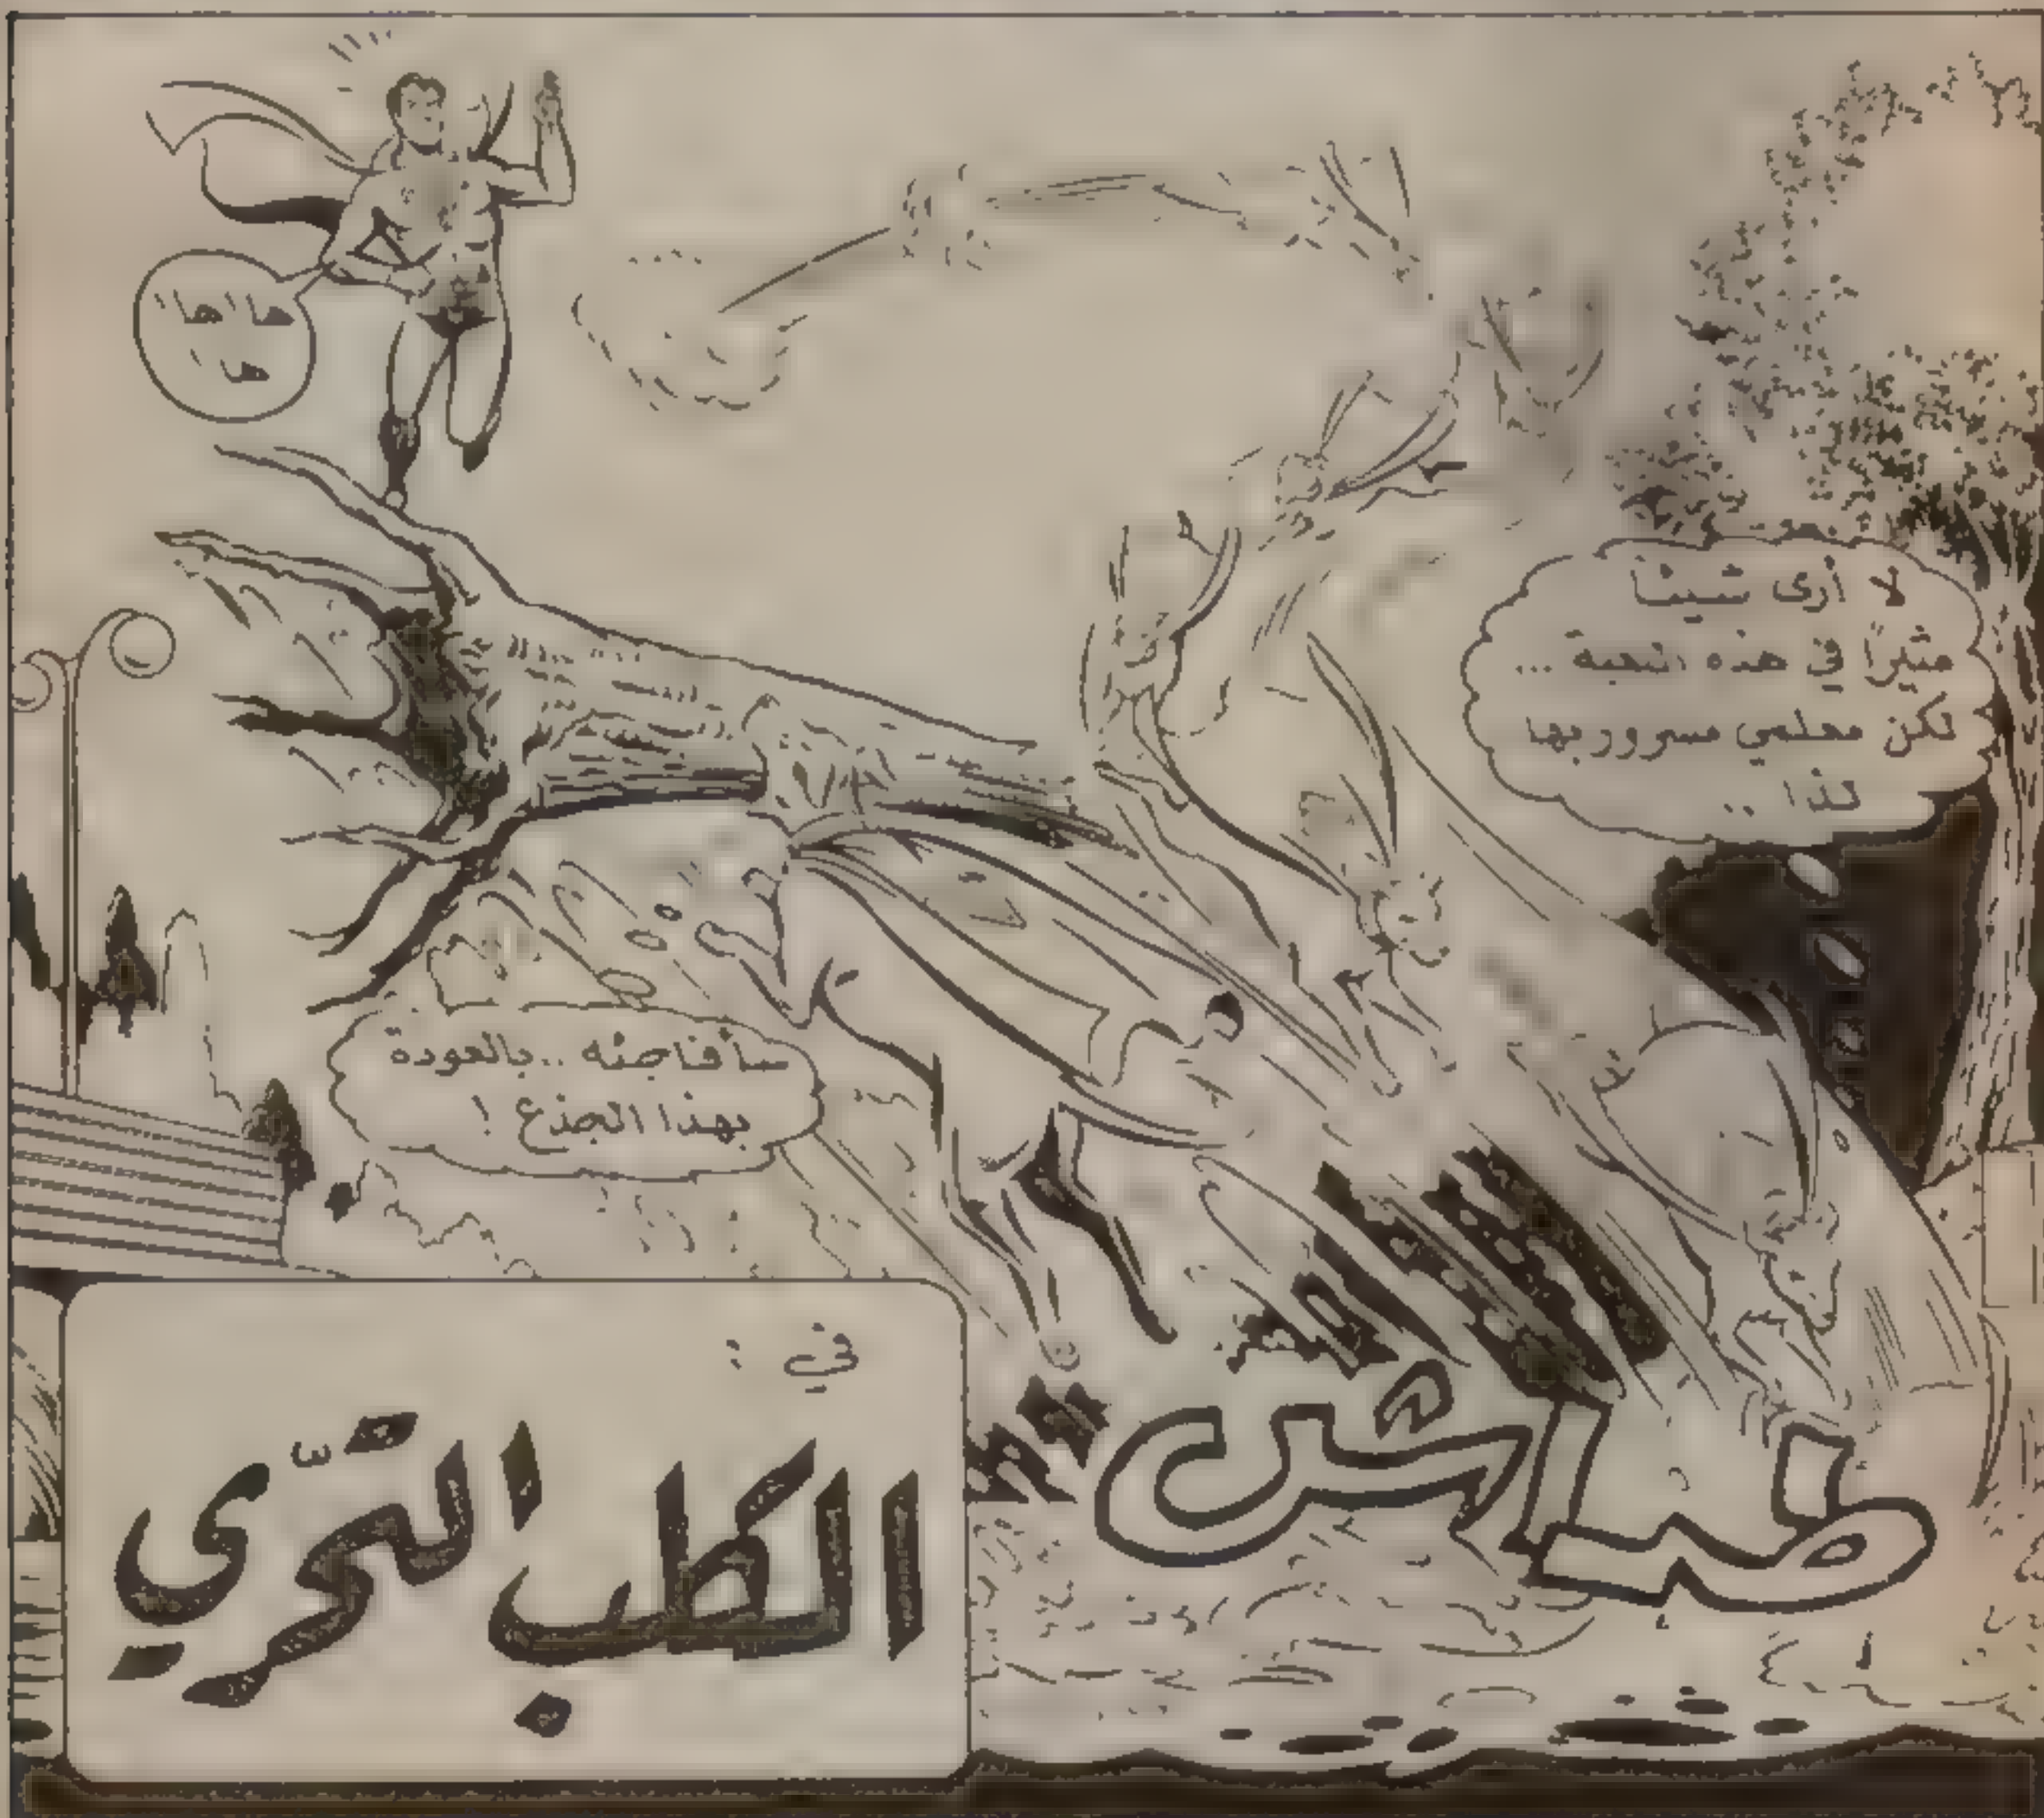 ها! ها!
ها!
لا أرى شيئاً
مثيراً في هذه اللعبة ...
لكن معلمي مسرور بها
لذا ..
سأفاجئه .. بالعودة
بهذا الجذع !
في :
الكلب التحرّي